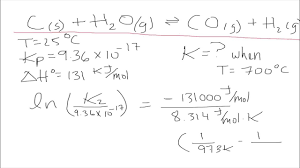 C(s) + H₂O(g) ⇌ CO(g) + H₂(g)
T=25°C
Kp=9.36×10⁻¹⁷ K=? when
ΔH°= 131 kJ/mol T=700°C
ln(K₂/9.36×10⁻¹⁷) = -131000 J/mol / 8.314 J/mol·K
(1/973K - 1/